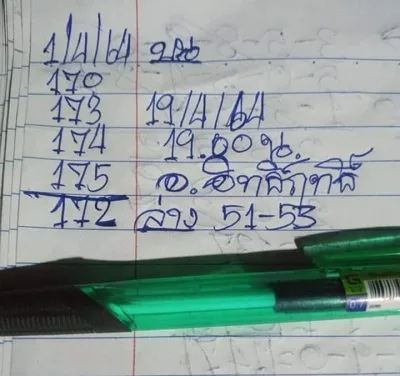 1/4/64 บน
170
173 19/4/64
174 19.00 น.
175 อ.อิทธิฤทธิ์
172 ล่าง 51-53